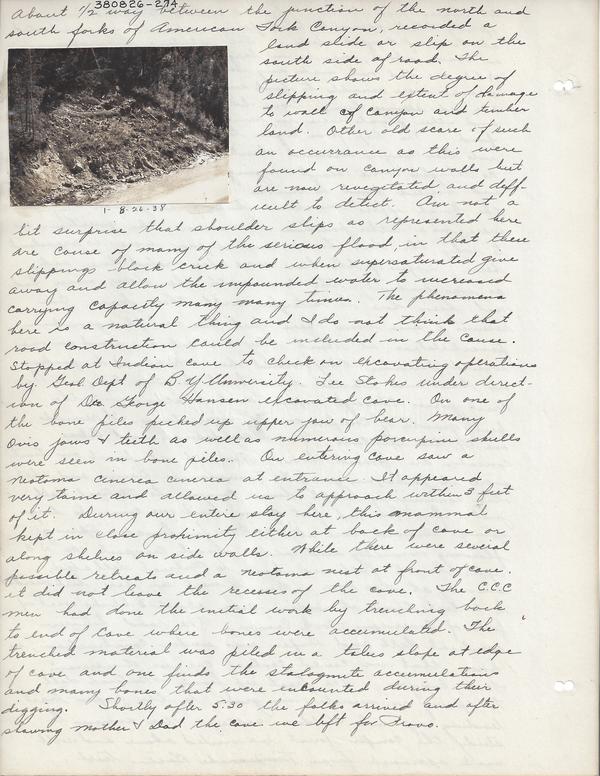 380826-274
About 1/2 way between the junction of the north and
south forks of American Fork Canyon, recorded a
land slide or slip on the
south side of road. The
picture shows the degree of
slipping and extent of damage
to wall of canyon and timber
land. Other old scars of such
an occurrance as this were
found on canyon walls but
are now revegetated and diff-
icult to detect. Am not a
1- 8-26-38
bit surprise that shoulder slips as represented here
are cause of many of the serious flood, in that these
slippings block creek and when supersaturated give
away and allow the impounded water to increased
carrying capacity many many times. The phenomena
here is a natural thing and I do not think that
road construction could be included in the cause.
Stopped at Indian cave to check on excavating operations
by Geol Dept of B.Y. University. Lee Stokes under direct-
ion of Dr. George Hansen excavated cave. On one of
the bone piles picked up upper jaw of bear. Many
Ovis jaws & teeth as well as numerous porcupine skulls
were seen in bone piles. On entering cave saw a
Neotoma cinerea cinerea at entrance. It appeared
very tame and allowed us to approach within 3 feet
of it. During our entire stay here, this mammal
kept in close prohimity either at back of cave or
along shelves on side walls. While there were several
possible retreats and a neotoma nest at front of cave.
it did not leave the recesses of the cave. The C.C.C
men had done the initial work by trenching back
to end of cave where bones were accumulated. The
trenched material was piled in a talus slope at edge
of cave and one finds the stalagmite accumulations
and many bones that were encounted during their
digging. Shortly after 5:30 the folks arrived and after
showing mother & Dad the cave we left for Provo.